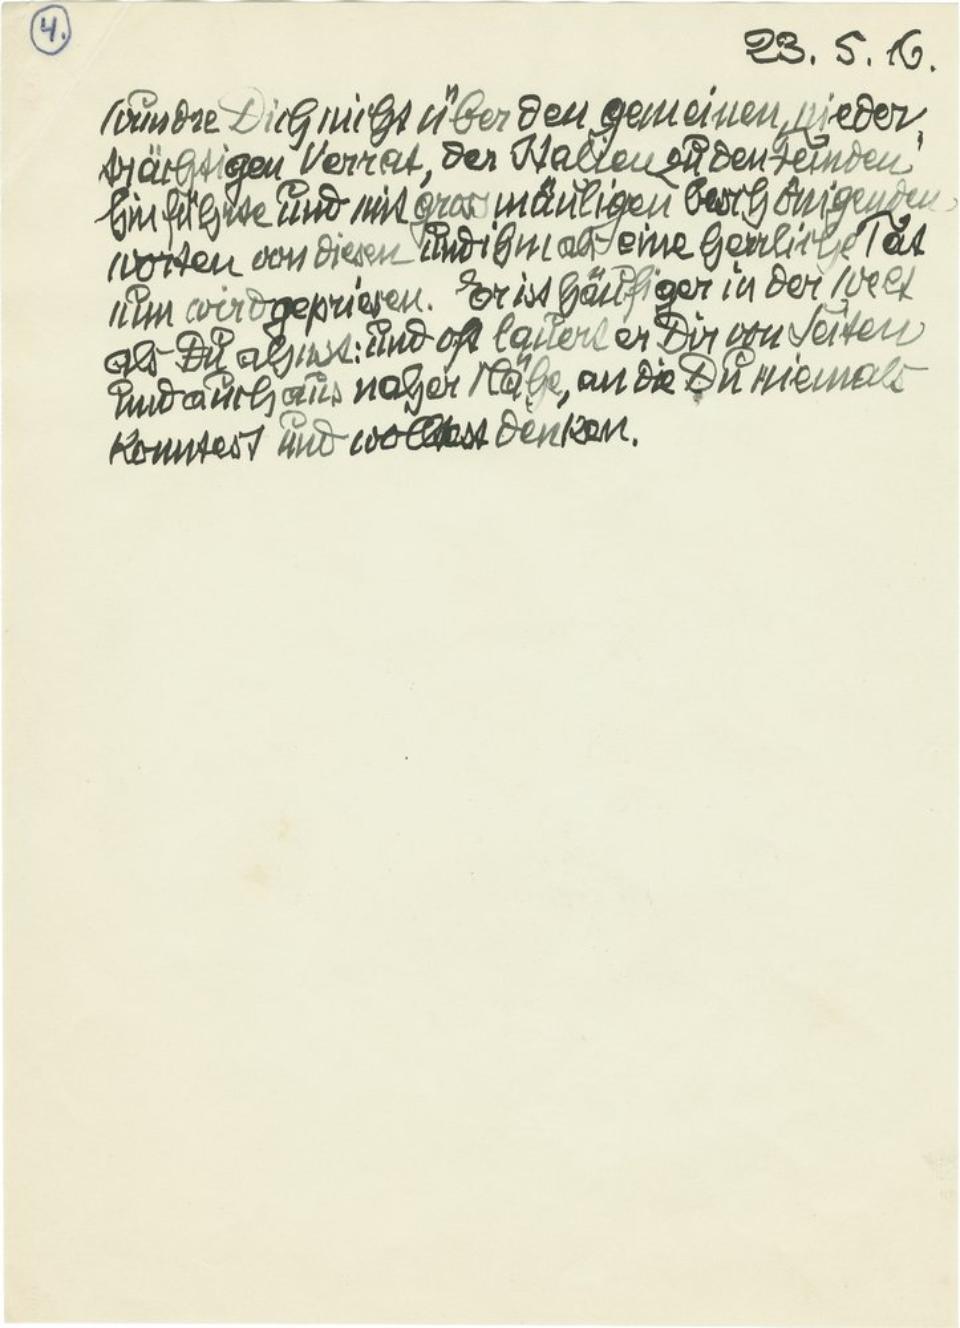 4.
23. 5. 16.
Wundre Dich nicht über den gemeinen, nieder,
trächtigen Verrat, der Italien zu den Feinden
hinführte und mit gros mäuligen beschönigenden
worten von diesen und ihm als eine herrliche Tat
nun wird gepriesen. Er ist häufiger in der Welt
als Du ahnst: und oft lauert er Dir von Seiten
und auch aus naher Nähe, an die Du niemals
konntest und wolltest denken.